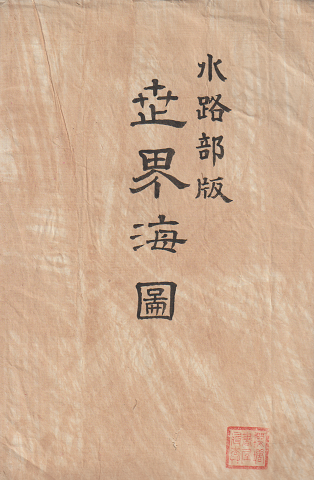 水路部版
世界海圖